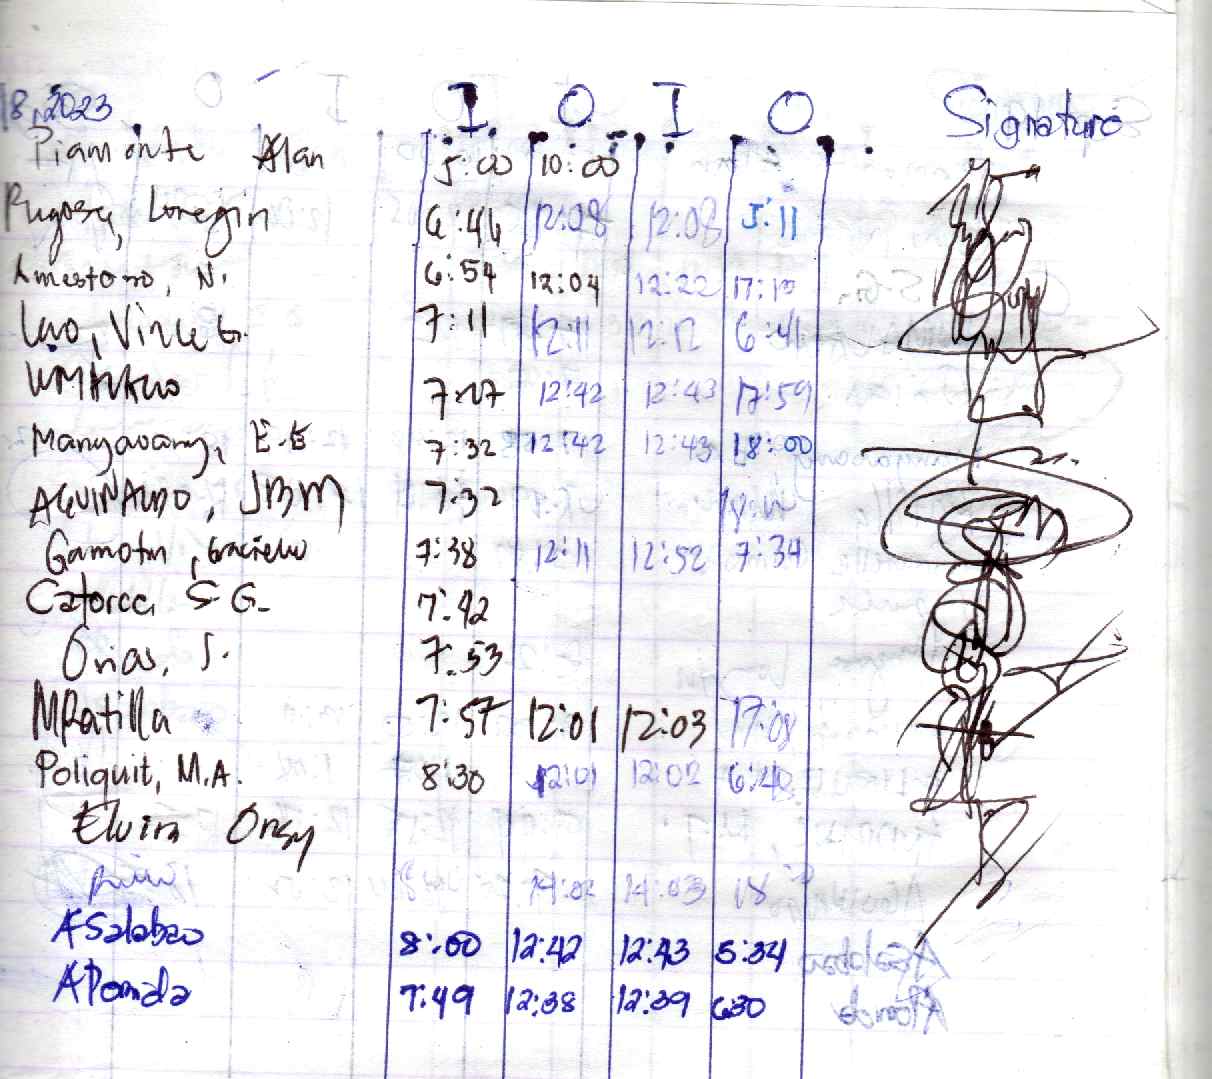 18, 2023 I O I O Signature
Piamonte Alan 5:00 10:00
Lonegin 6:46 12:08 12:08 5:11
Amestoso, N. 6:54 12:04 12:22 17:13
Lao, Vince G. 7:11 12:11 12:12 6:41
7:27 12:42 12:43 17:59
E.E 7:32 12:42 12:43 18:00
AGUINALDO, JBM 7:32
Gamotin, 7:38 12:11 12:52 7:34
Catorca, S G. 7:42
Orias, J. 7:53
MRatilla 7:57 12:01 12:03 17:08
Poliquit, M.A. 8:30 12:01 12:02 6:48
Elvira Orsy
14:02 14:03 18
ASalabao 8:00 12:42 12:43 5:34
APomida 7:49 12:38 12:39 630